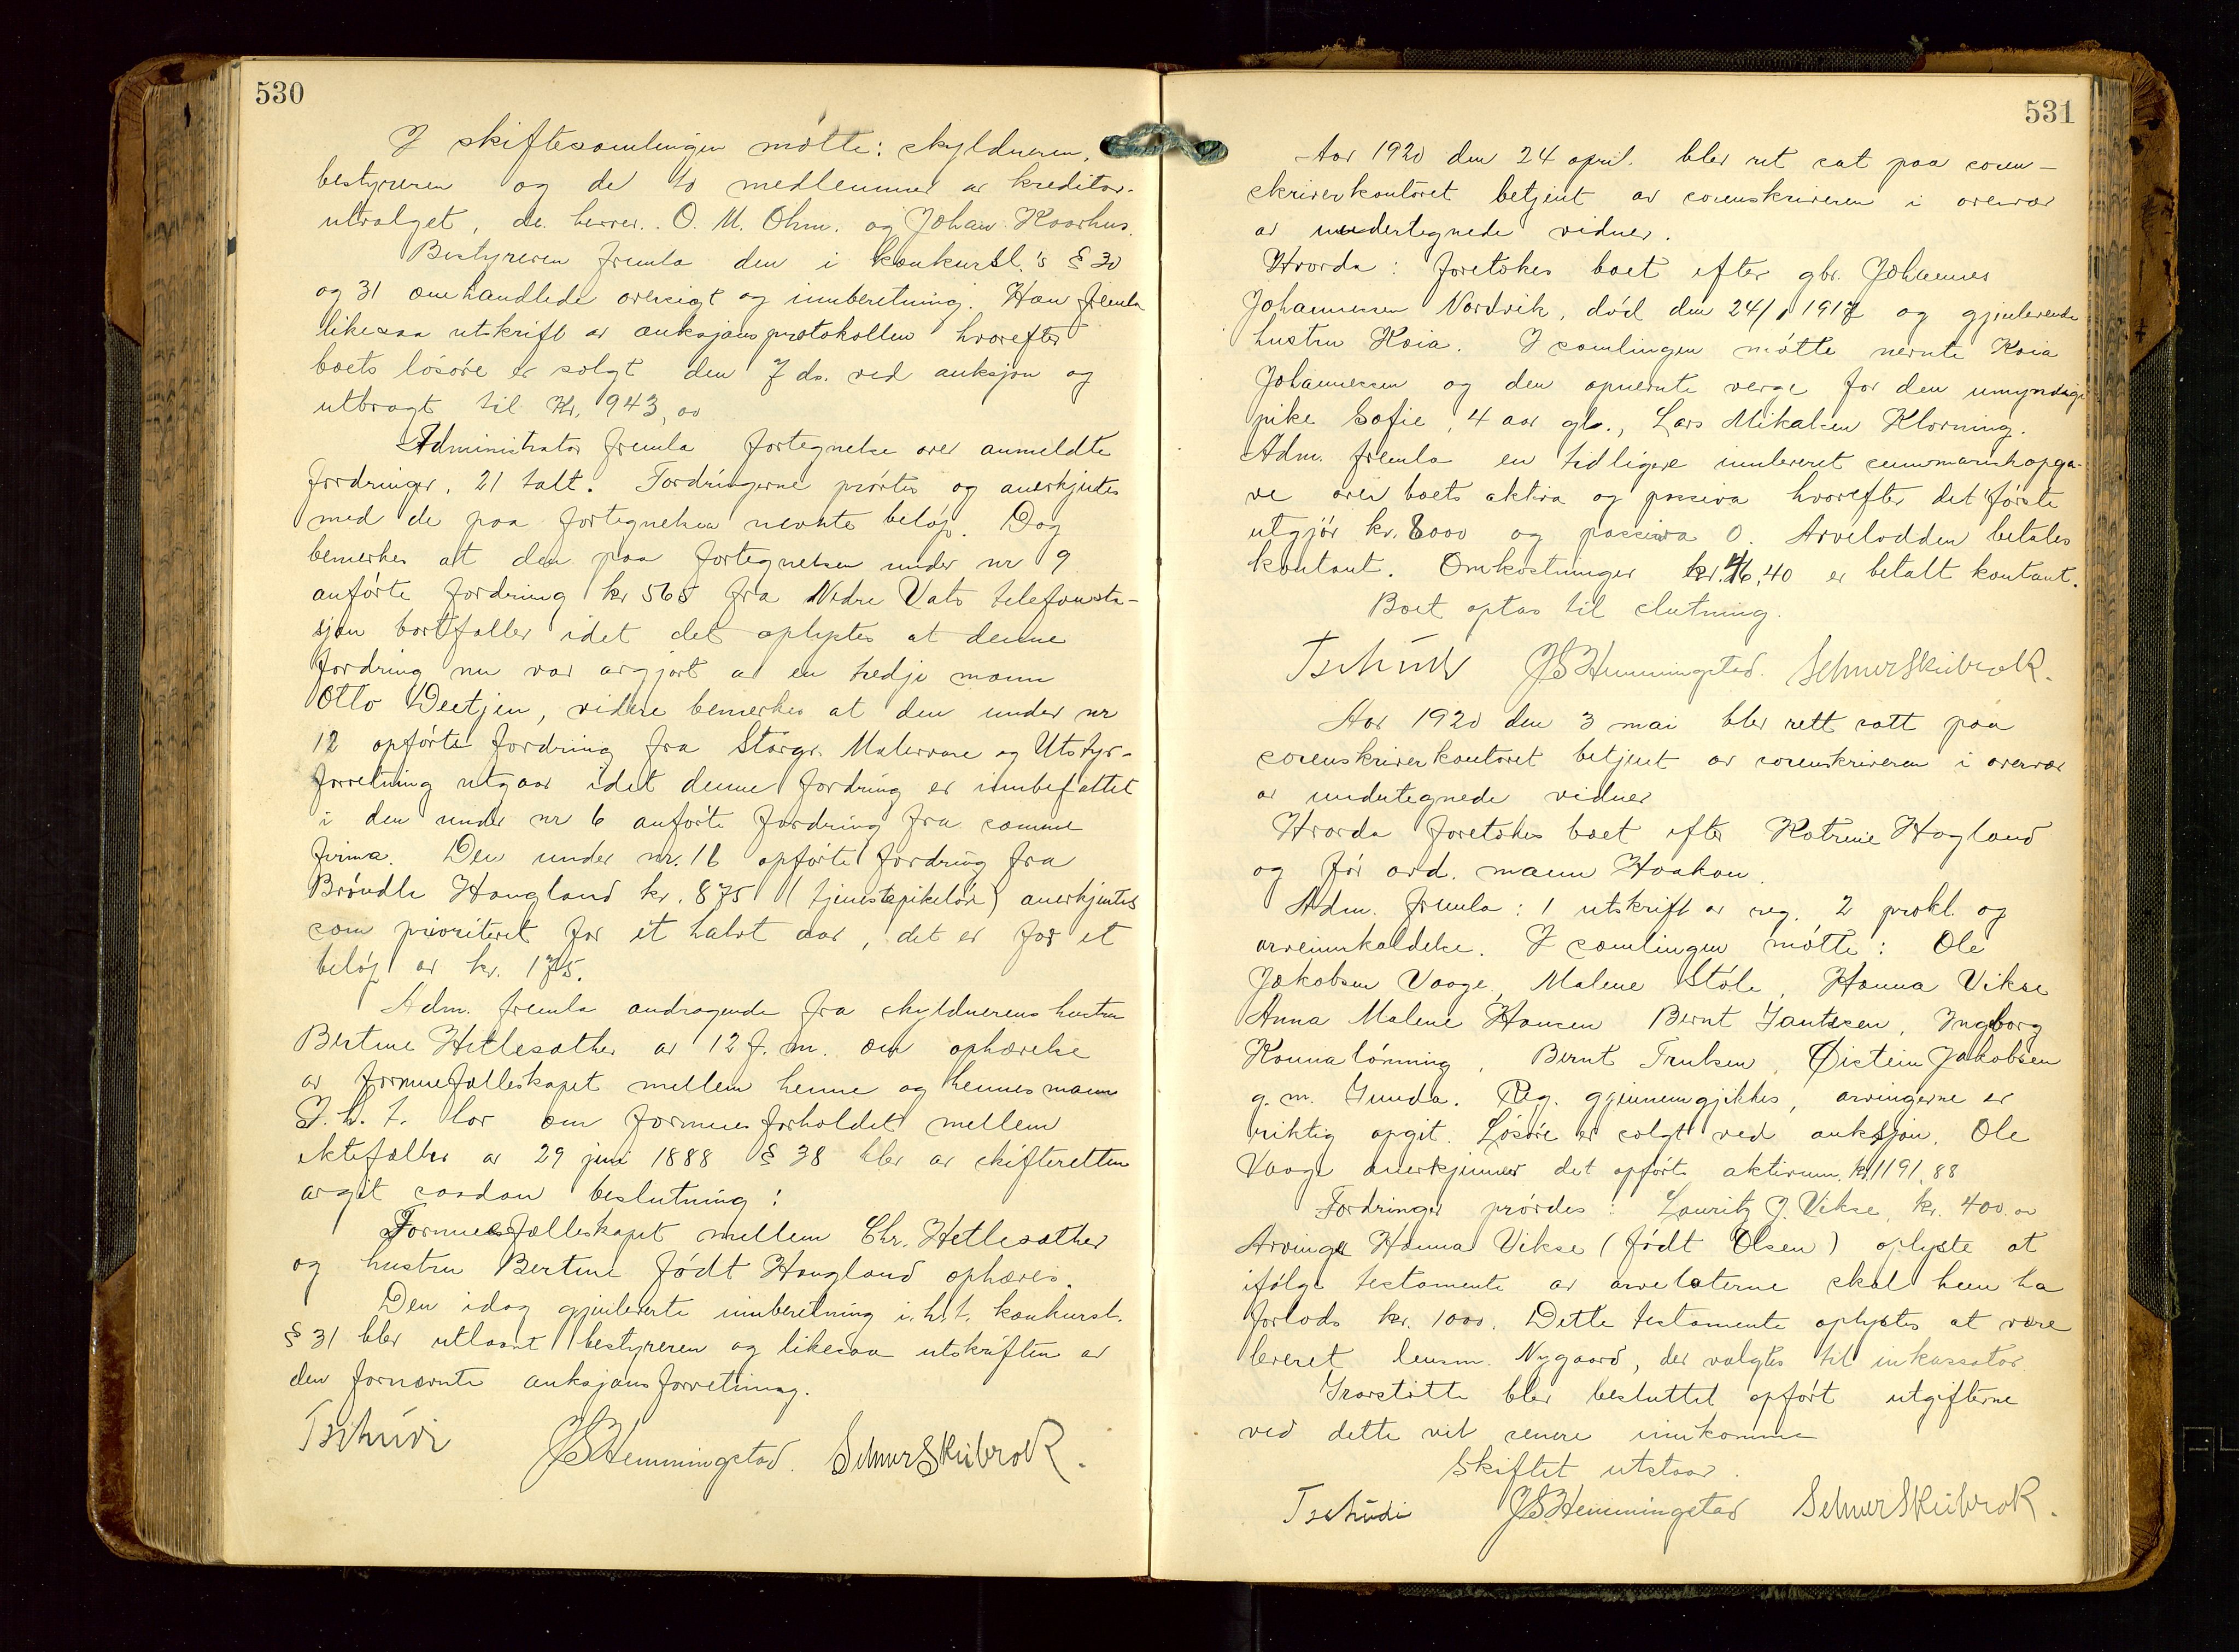 530
I skiftesamlingen møtte: skyldneren,
bestyreren og de to medlemmer av kreditor-
utvalget, de herrer. O. M. Ohm. og Johan Kaarhus.
Bestyreren fremla den i konkursl.'s § 30
og 31 omhandlede oversigt og innberetning. Han fremla
likesaa utskrift av auksjonsprotokollen hvorefter
boets løsøre er solgt den 7 ds. ved auksjon og
utbragt til Kr. 943,00
Administrator fremla fortegnelse over anmeldte
fordringer, 21 talt. Fordringerne prøvtes og anerkjentes
med de paa fortegnelsen nevnte beløp. Dog
bemerkes at den paa fortegnelsen under nr 9
anførte fordring kr 565 fra Nedre Vats telefonsta-
sjon bortfaller idet det oplystes at denne
fordring nu var avgjort av en tredje mann
Otto Deetjen, videre bemerkes at den under nr
12 opførte fordring fra Storgt. Malervare og Utstyr-
forretning utgaar idet denne fordring er innbefattet
i den under nr 6 anførte fordring fra samme
firma. Den under nr. 16 opførte fordring fra
Brøndla Haugland kr. 875 (tjenestepikeløn) anerkjentes
som prioritert for et halvt aar, det er for et
beløp av kr. 175.
Adm. fremla andragende fra skyldnerens hustru
Bertine Hetlesæther av 12 f. m. om ophævelse
av formuefælleskapet mellem henne og hennes mann
I. h. t. lov om formuesforholdet mellem
ektefæller av 29 juni 1888 § 38 blev av skifteretten
avgit saadan beslutning:
Formuesfælleskapet mellem Chr. Hetlesæther
og hustru Bertine født Haugland ophæves.
Den idag gjenleverte innberetning i. h. t. konkursl.
§ 31 blev utlaant bestyreren og likesaa utskriften av
den fornævnte auksjonsforretning.
Tschudi JS Hemmingstad. Selmer Skibrok.
531
Aar 1920 den 24 april. blev ret sat paa soren-
skriverkontoret betjent av sorenskriveren i overvær
av undertegnede vidner.
Hvorda: foretokes boet efter gbr. Johannes
Johannessen Nordvik, død den 24/1 1917 og gjenlevende
hustru Kaia. I samlingen møtte nevnte Kaia
Johannessen og den opnevnte verge for den umyndige
pike Sofie, 4 aar gl., Lars Mikalsen Klovning.
Adm. fremla en tidligere innleveret summariskopga-
ve over boets aktiva og passiva hvorefter det første
utgjør kr. 8000 og passiva 0. Arvelodden betales
kontant. Omkostninger kr. 46,40 er betalt kontant.
Boet optas til slutning.
Tschudi JS Hemmingstad. Selmer Skibrok.
Aar 1920 den 3 mai blev rett satt paa
sorenskriverkontoret betjent av sorenskriveren i overvær
av undertegnede vidner
Hvorda foretokes boet efter Katrine Hagland
og før avd. mann Haakon.
Adm. fremla: 1 utskrift av reg. 2 prokl. og
arveinnkaldelse. I samlingen møtte: Ole
Jakobsen Vaage, Malene Støle, Hanna Vikse
Anna Malene Hansen Bernt Jantzen, Ingeborg
Konna Lønning, Bernt Trulsen, Øistein Jakobsen
g. m. Gunda. Reg. gjennemgikkes, arvingerne er
riktig opgit. Løsøre er solgt ved auksjon. Ole
Vaage anerkjenner det opførte aktivum. kr 1191,88
Fordringer prøvdes: Lauritz J. Vikse, kr. 400.00
Arvinge Hanna Vikse (født Olsen) oplyste at
ifølge testamente av arvelaterne skal hun ha
forlods kr. 1000. Dette testamente oplystes at være
leveret lensm. Nygaard, der valgtes til inkassator.
Gravstøtte blev besluttet opført utgifterne
ved dette vil senere innkomme
Skiftet utstaar.
Tschudi JS Hemmingstad Selmer Skibrok.